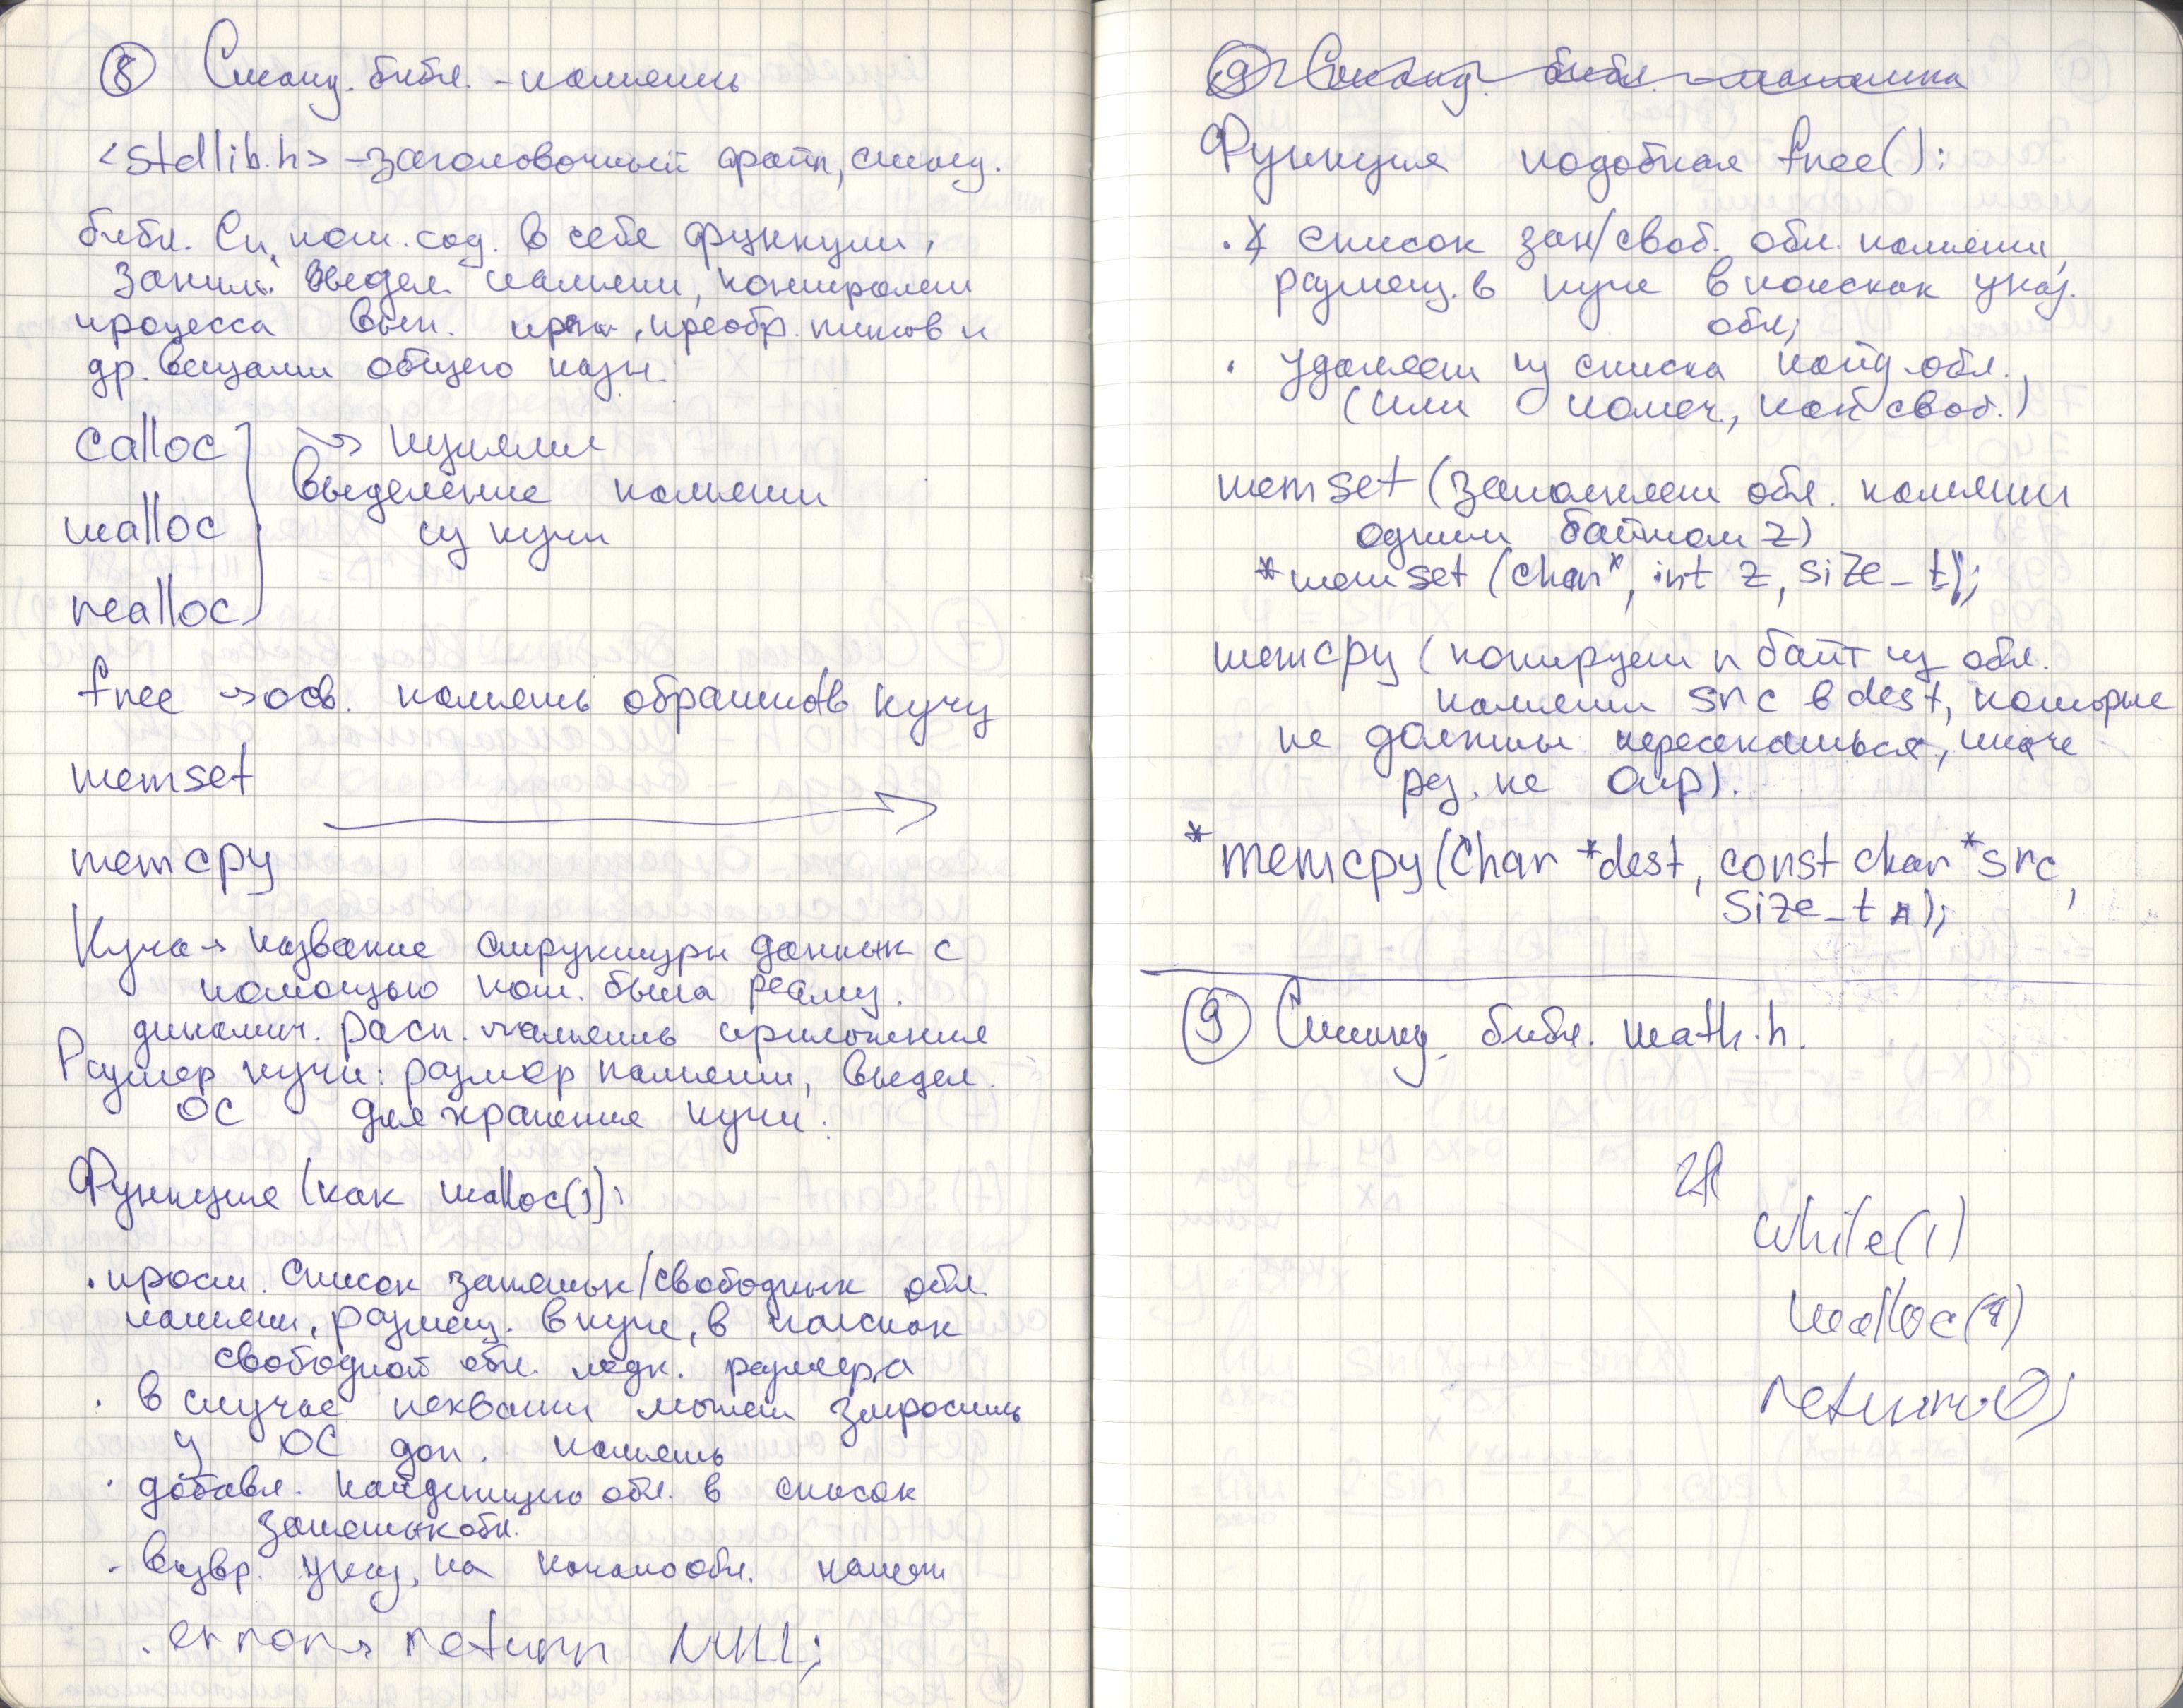 ⑧ Станд. библ. - память
<stdlib.h> - заголовочный файл, станд.
библ. Си, кот. сод. в себе функции,
заним. выдел. памяти, контролем
процесса вып. прогр., преобр. типов и
др. вещами общего назн.
calloc → куплям
выделение памяти
malloc из кучи
realloc
free → осв. память обратно в кучу
memset
memcpy
Куча → название структуры данных с
помощью кот. была реализ.
динамич. расп. память приложения
Размер кучи: размер памяти, выдел.
ОС для хранения кучи.
Функция (как malloc()):
· просм. список занятых/свободных обл.
памяти, размещ. в куче, в поисках
свободной обл. подх. размера
· в случае нехватки может запросить
у ОС доп. память
· добавл. найденную обл. в список
занятых обл.
· возвр. указ. на начало обл. памяти
· error → return NULL;
⑨ Станд. библ. - математика
Функция подобная free():
· список зан/своб. обл. памяти,
размещ. в куче в поисках указ.
обл;
· удаляет из списка найд. обл.
(или помеч, как своб.)
memset (заполняет обл. памяти
одним байтом z)
*memset (char*, int z, size_t);
memcpy (копирует n байт из обл.
памяти src в dest, которые
не должны пересекаться, иначе
рез. не опр).
*memcpy (char *dest, const char *src,
size_t n);
⑨ Станд. библ. math.h.
while(1)
malloc(4)
return 0;